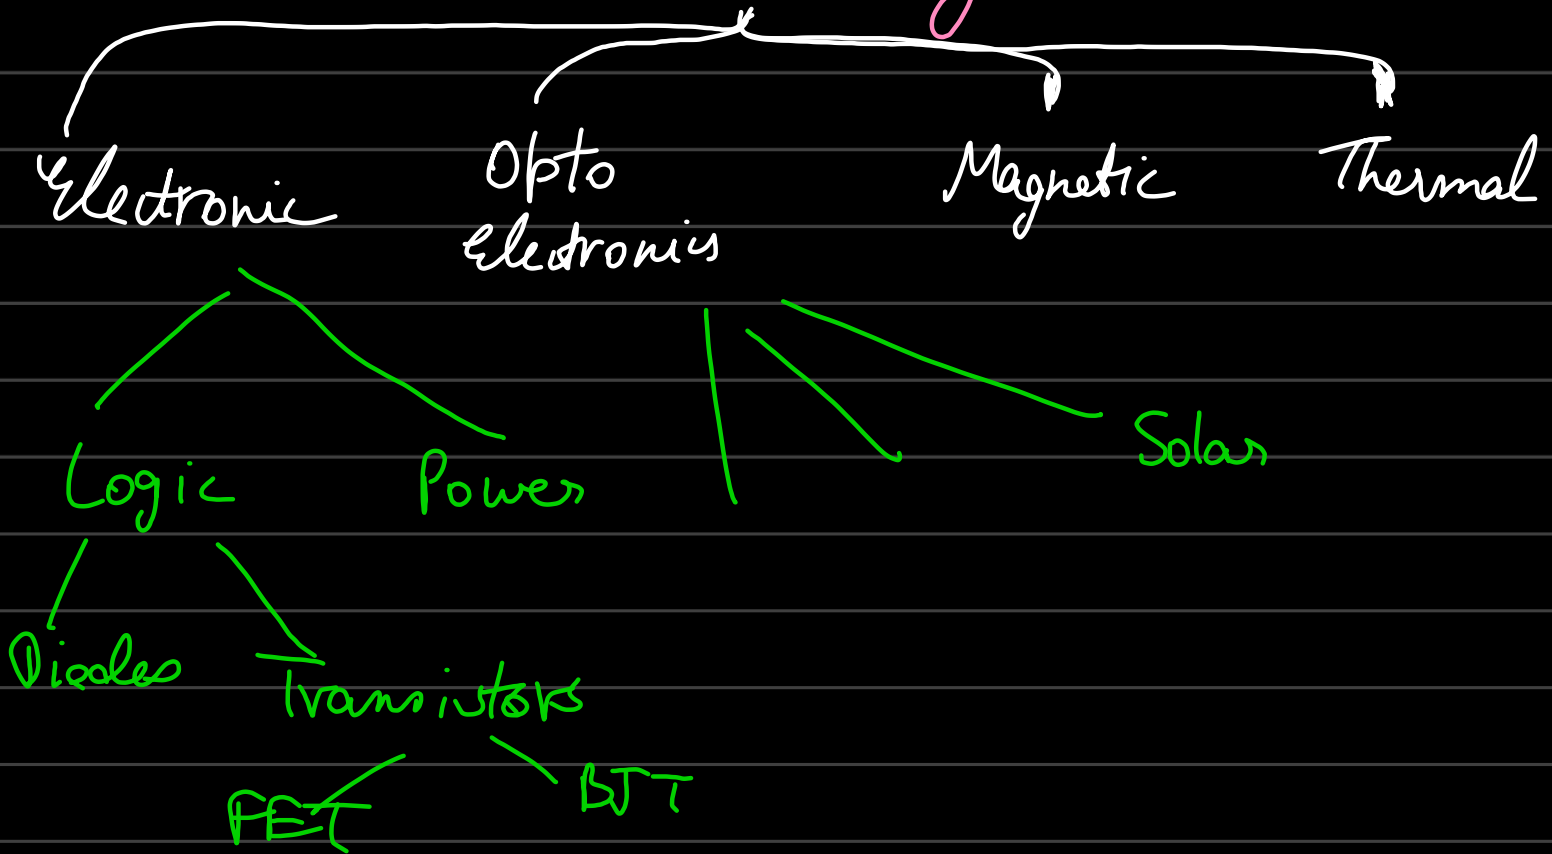 Electronic
Opto
Electronics
Magnetic
Thermal
Logic
Power
Solar
Diodes
Transistors
FET
BJT